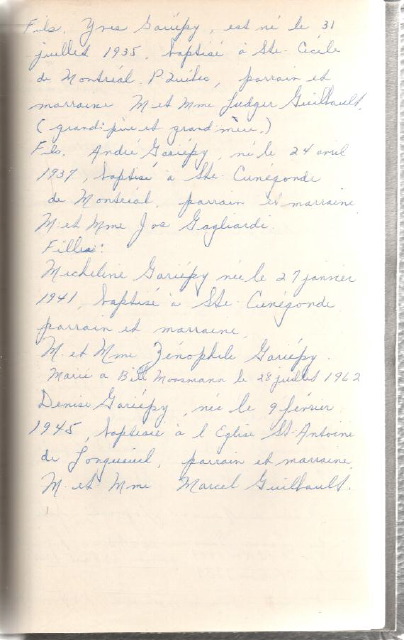 Fils. Yves Gariépy, est né le 31
juillet 1935, baptisé à Ste-Cécile
de Montréal. P Québec, parrain et
marraine M et Mme Ludger Guilbault.
(grand-père et grand mère.)
Fils. André Gariépy, né le 24 avril
1937, baptisé à Ste Cunegonde
de Montréal. parrain et marraine
M et Mme Jos Gagliardi.
Filles:
Micheline Gariépy née le 27 janvier
1941, baptisé à Ste-Cunegonde
parrain et marraine
M. et Mme Zénophile Gariépy.
Marié a Bill le 28 juillet 1962
Denise Gariépy, née le 9 février
1945, baptisée à l Eglise St-Antoine
de Longueuil, parrain et marraine
M et Mme Marcel Guilbault.